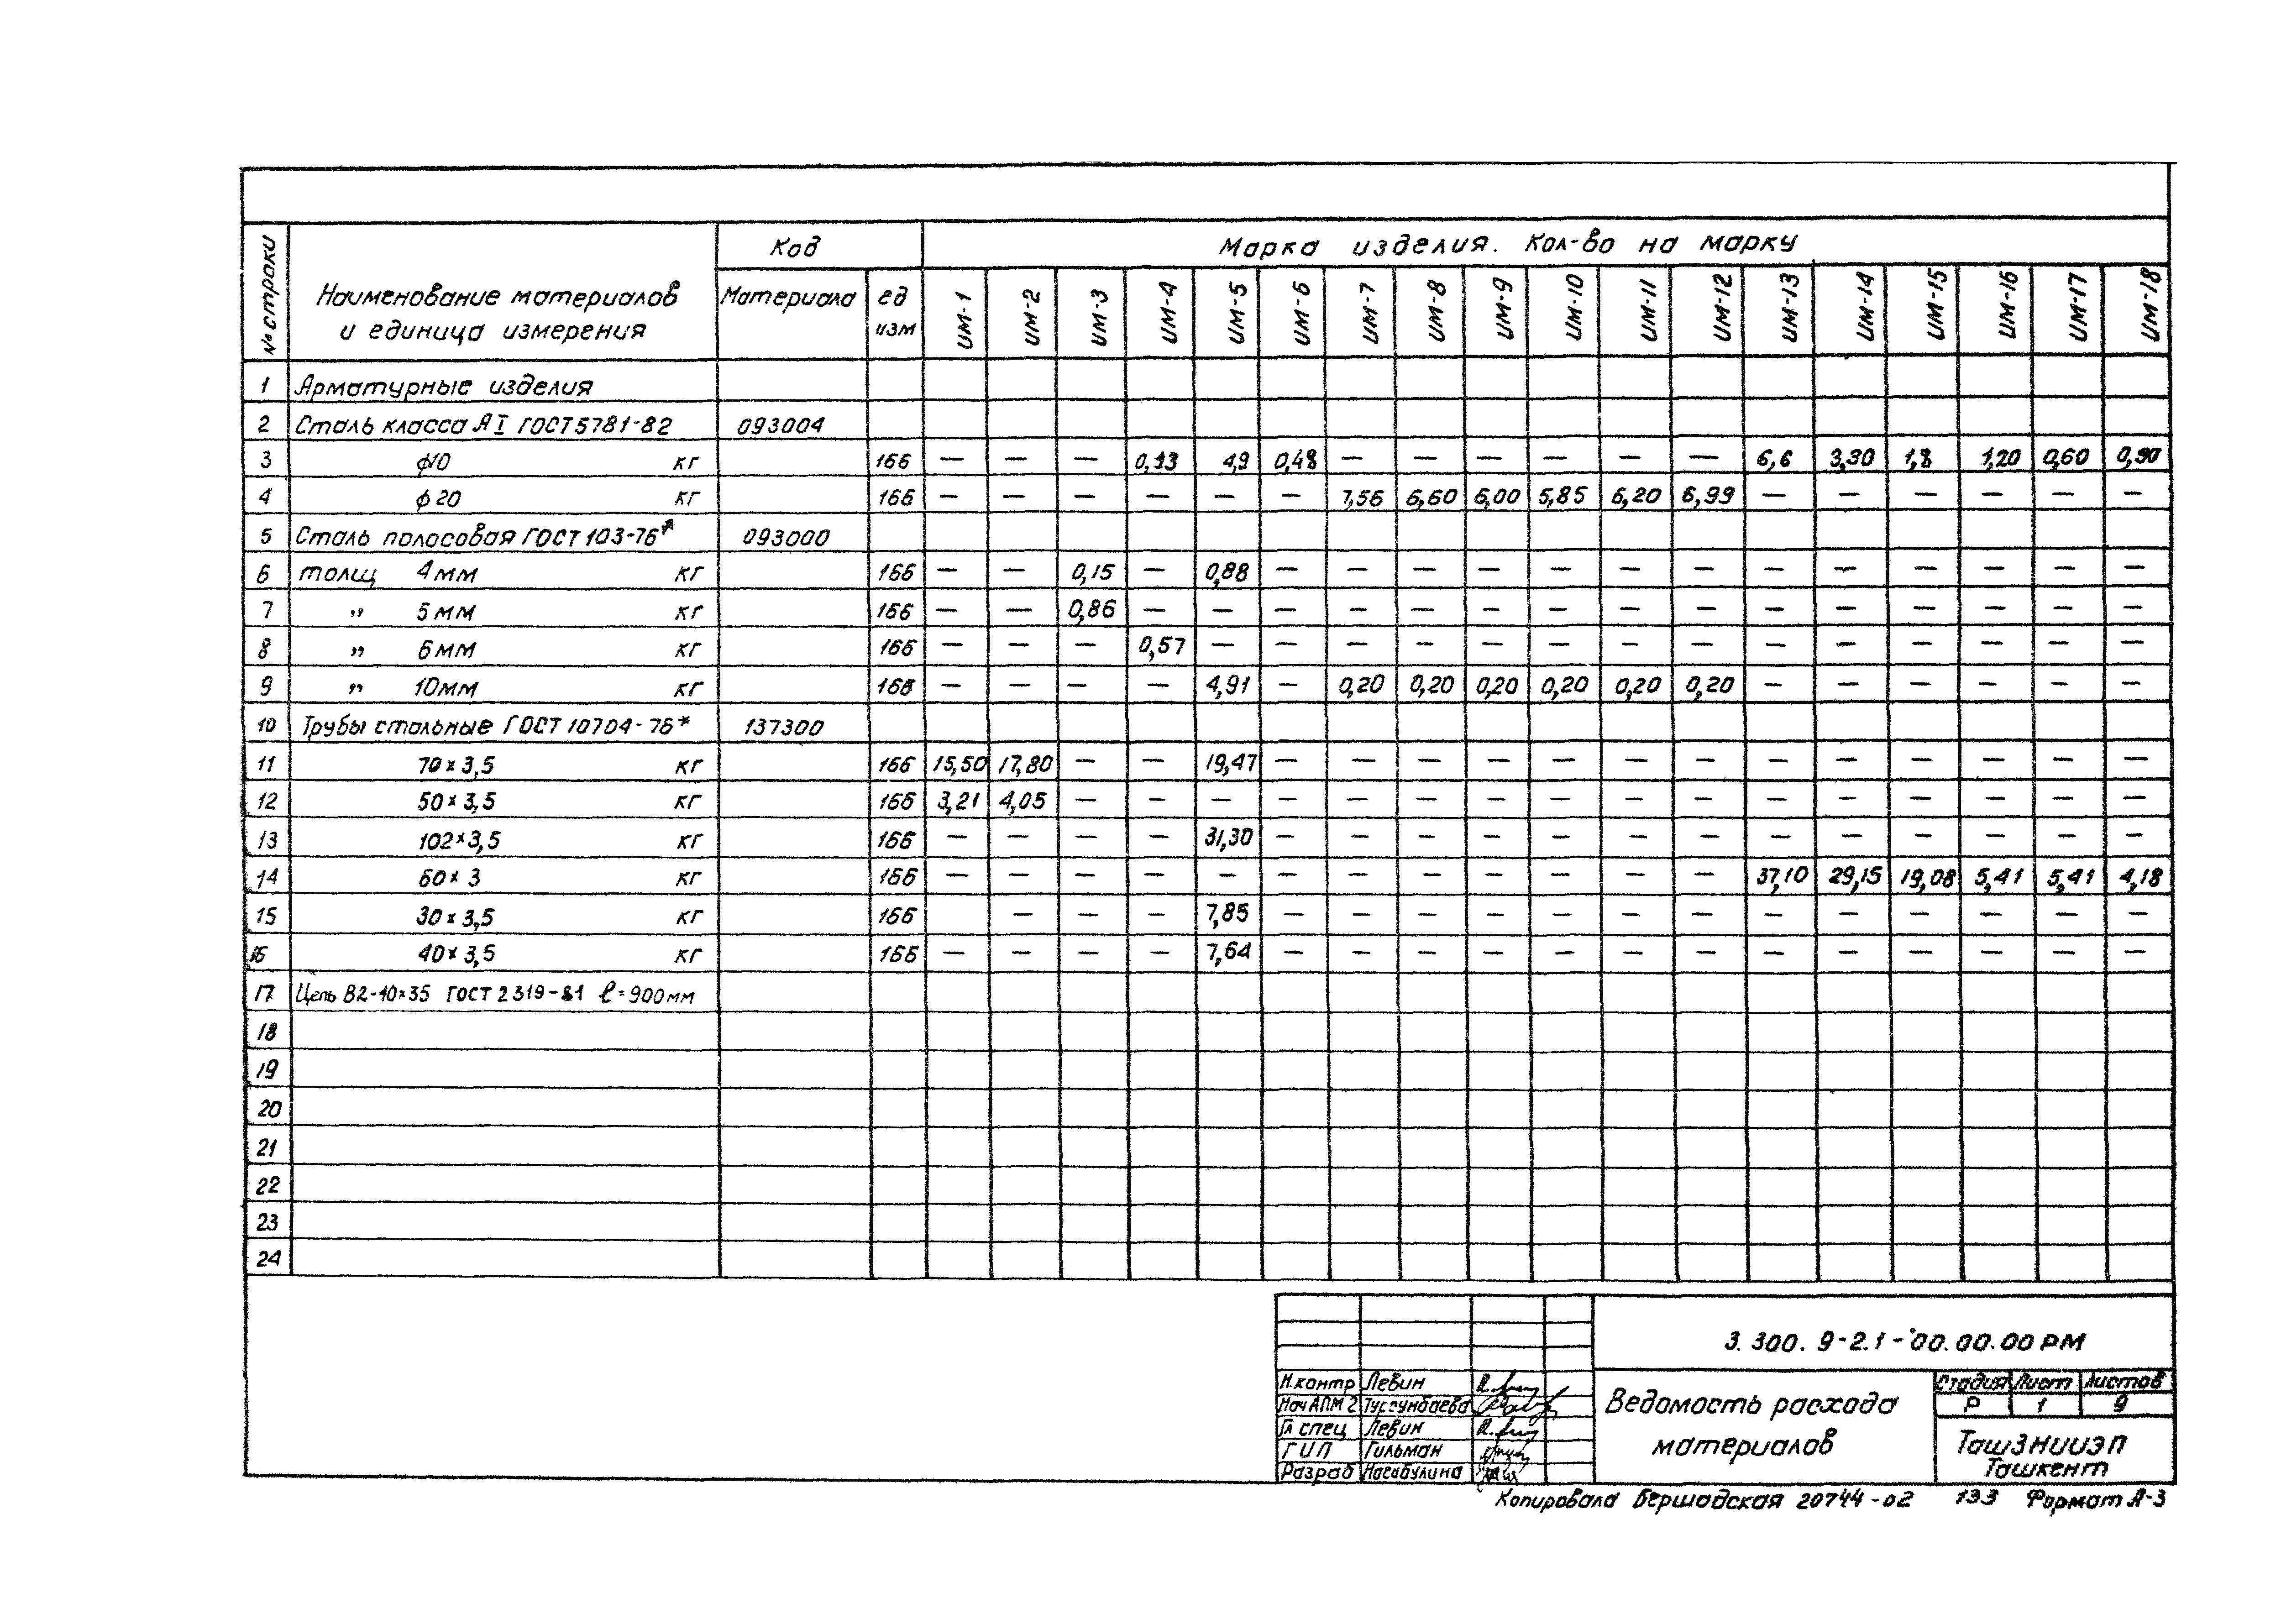 № строки Наименование материалов и единица измерения Код Марка изделия. Кол-во на марку
Материала ед изм ИМ-1 ИМ-2 ИМ-3 ИМ-4 ИМ-5 ИМ-6 ИМ-7 ИМ-8 ИМ-9 ИМ-10 ИМ-11 ИМ-12 ИМ-13 ИМ-14 ИМ-15 ИМ-16 ИМ-17 ИМ-18
1 Арматурные изделия
2 Сталь класса АI ГОСТ 5781-82 093004
3 ф10 кг 166 — — — 0,13 4,9 0,48 — — — — — — 6,6 3,30 1,8 1,20 0,60 0,90
4 ф20 кг 166 — — — — — — 7,56 6,60 6,00 5,85 6,20 6,99 — — — — — —
5 Сталь полосовая ГОСТ 103-76* 093000
6 толщ 4мм кг 166 — — 0,15 — 0,88 — — — — — — — — — — — — —
7 " 5мм кг 166 — — 0,86 — — — — — — — — — — — — — — —
8 " 6мм кг 166 — — — 0,57 — — — — — — — — — — — — — —
9 " 10мм кг 166 — — — — 4,91 — 0,20 0,20 0,20 0,20 0,20 0,20 — — — — — —
10 Трубы стальные ГОСТ 10704-76* 137300
11 70×3,5 кг 166 15,50 17,80 — — 19,47 — — — — — — — — — — — — —
12 50×3,5 кг 166 3,21 4,05 — — — — — — — — — — — — — — — —
13 102×3,5 кг 166 — — — — 31,30 — — — — — — — — — — — — —
14 60×3 кг 166 — — — — — — — — — — — — 37,10 29,15 19,08 5,41 5,41 4,18
15 30×3,5 кг 166 — — — 7,85 — — — — — — — — — — — — —
16 40×3,5 кг 166 — — — — 7,64 — — — — — — — — — — — — —
17 Цепь В2-10×35 ГОСТ 2319-81 ℓ=900мм
18
19
20
21
22
23
24
3.300.9-2.1-00.00.00РМ
Н.контр Левин
Нач АПМ 2 Турсунбаева
Гл спец Левин
ГИП Гильман
Разраб Насибулина
Ведомость расхода
материалов
Стадия Лист Листов
Р 1 9
ТашЗНИИЭП
Ташкент
Копировала Бершадская 20744-02 133 Формат А-3